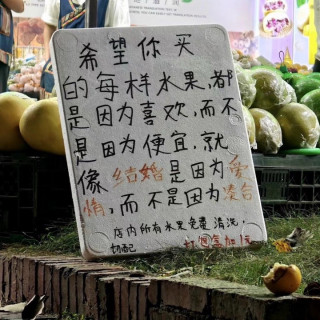 希望你买
的每样水果,都
是因为喜欢,而不
是因为便宜.就
像结婚是因为爱
情,而不是因为凑合
店内所有水果免费清洗,
切配